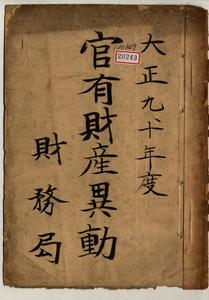 大正九十年度
官有財産異動
財務局
20243